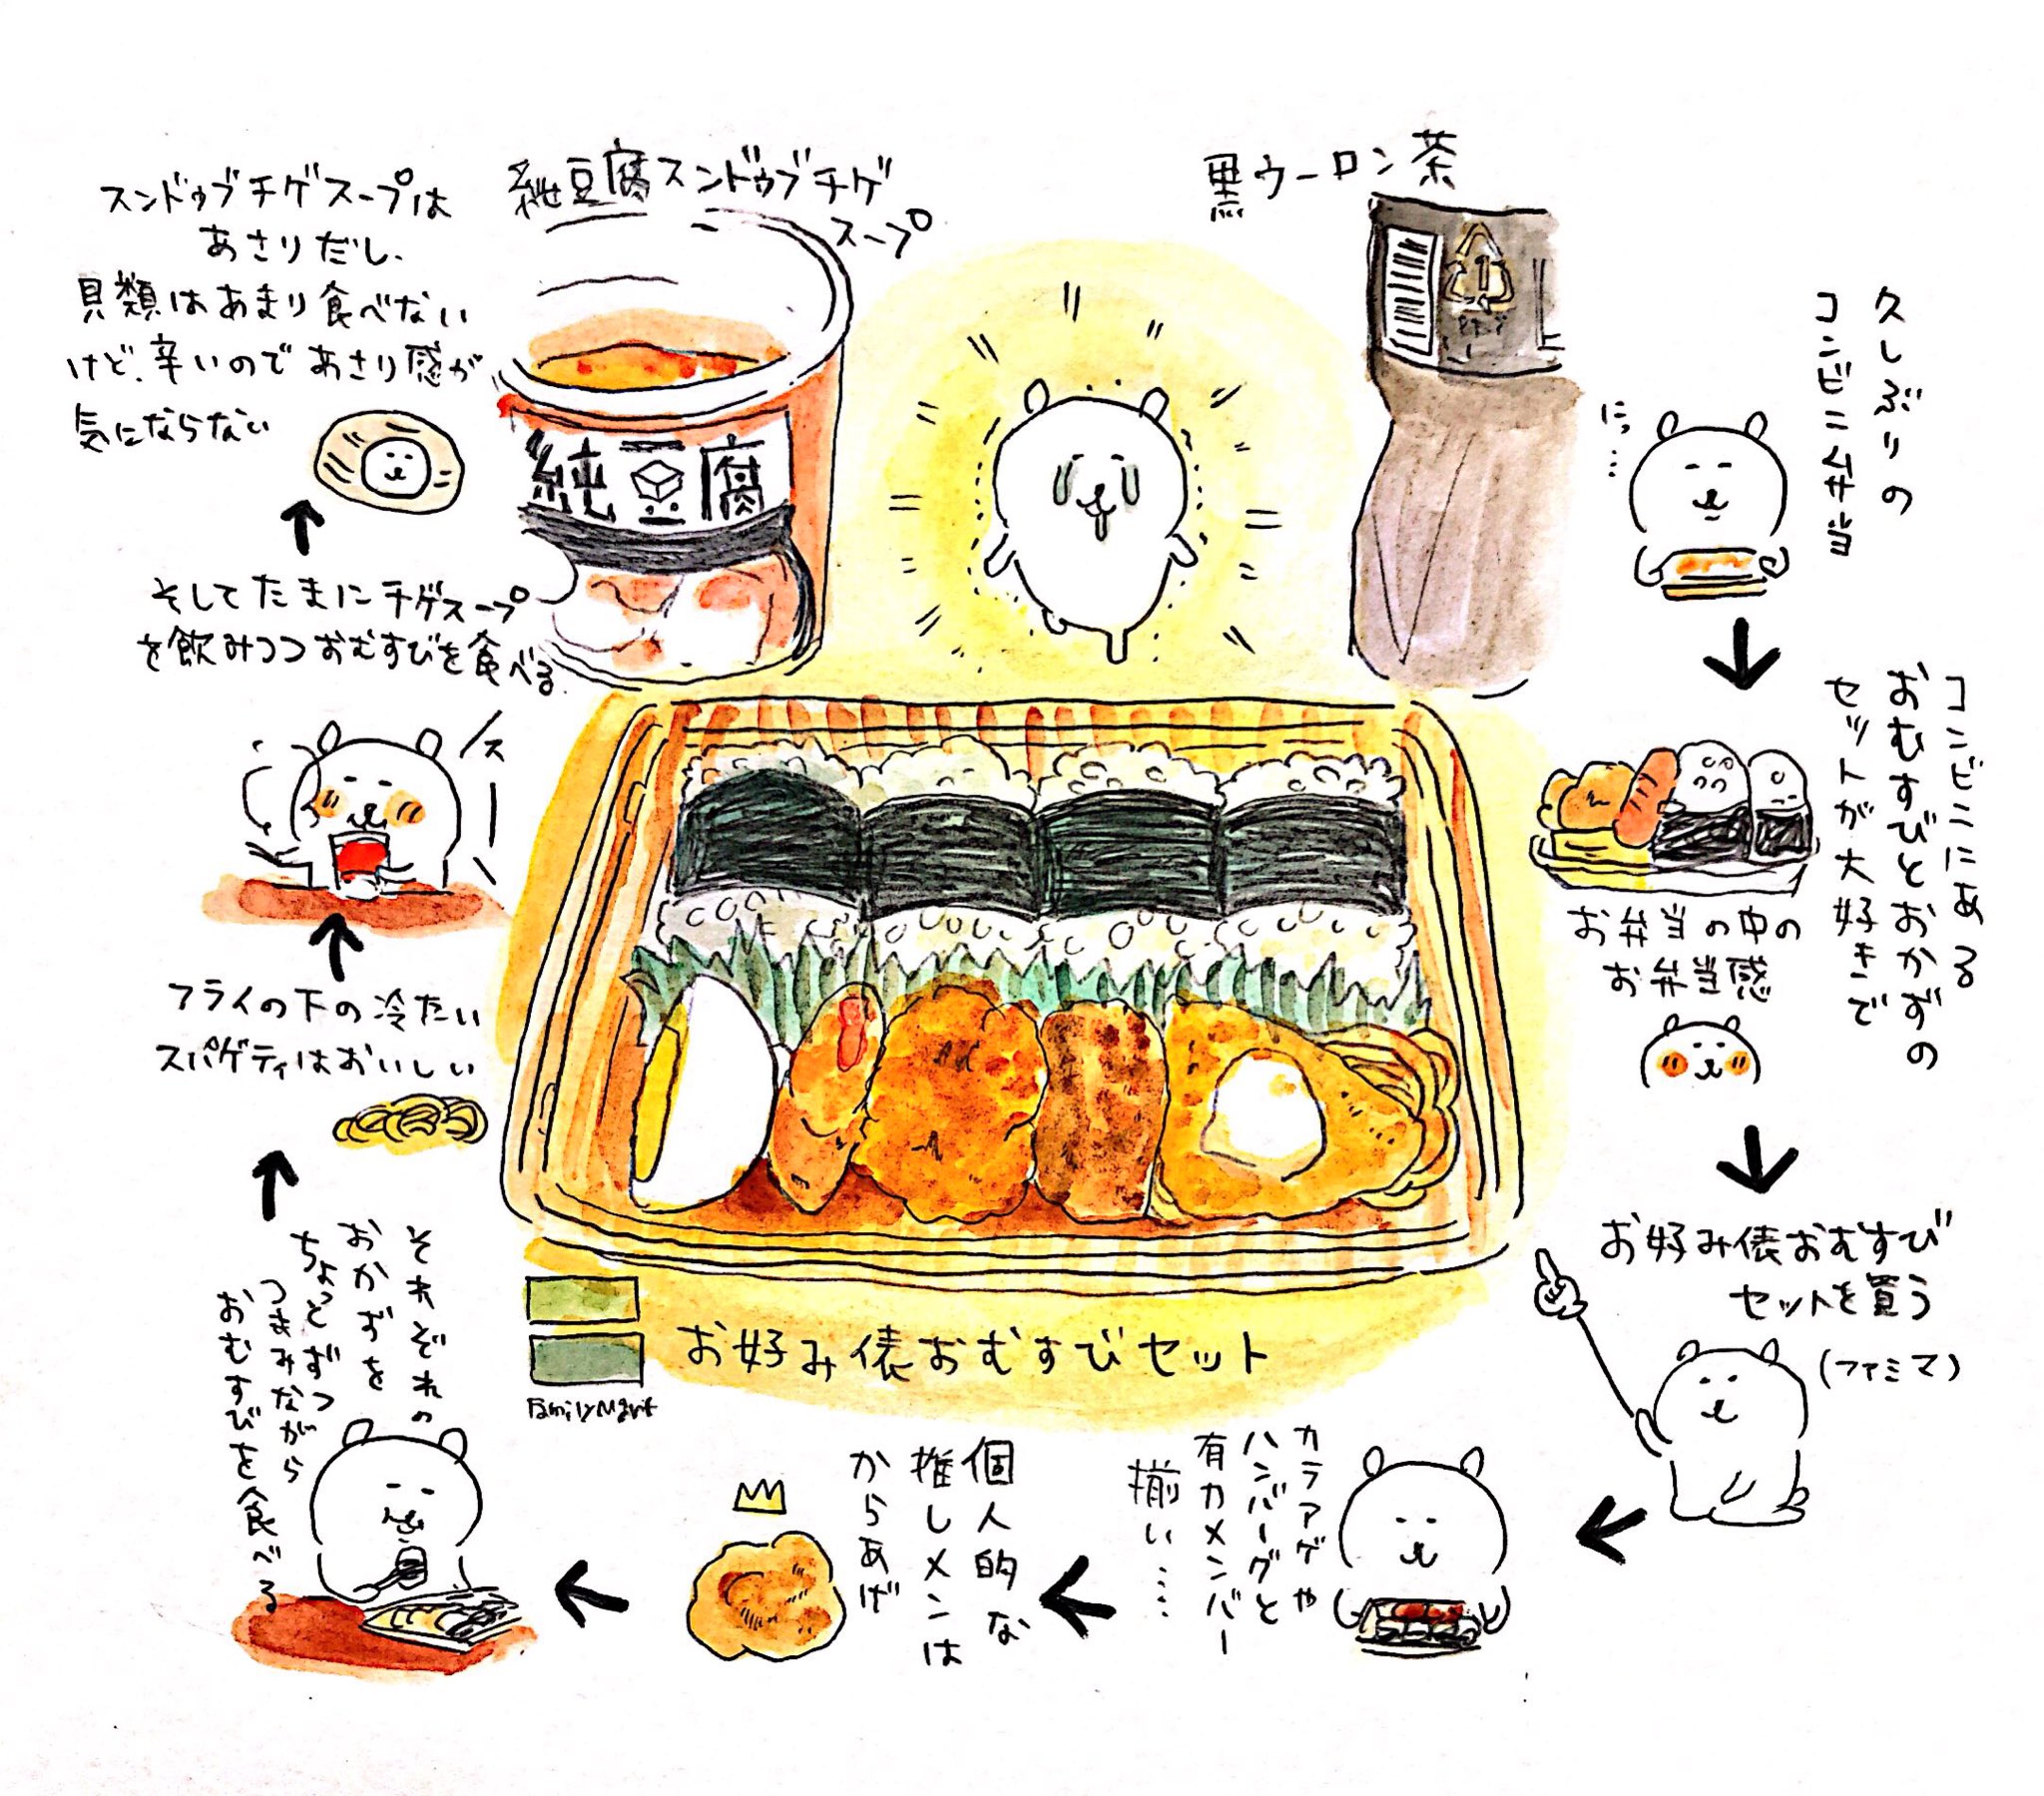 純豆腐スンドゥブチゲ
スープ
純豆腐
黒ウーロン茶
久しぶりの
コンビニ弁当
にっ…
コンビニにある
おむすびとおかずの
セットが大好きで
お弁当の中の
お弁当感
お好み俵おむすび
セットを買う
(ファミマ)
カラアゲや
ハンバーグと
有力メンバー
揃い……
個人的な
推しメンは
からあげ
それぞれの
おかずを
ちょっとずつ
つまみながら
おむすびを食べる
フライの下の冷たい
スパゲティはおいしい
スー
そしてたまにチゲスープ
を飲みつつおむすびを食べる
スンドゥブチゲスープは
あさりだし、
貝類はあまり食べない
けど、辛いのであさり感が
気にならない
お好み俵おむすびセット
FamilyMart